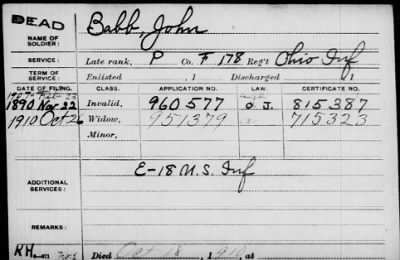 DEAD
NAME OF SOLDIER: Babb, John
SERVICE: Late rank, P Co. F 178 Reg't Ohio Inf
TERM OF SERVICE: Enlisted , 1 Discharged , 1
DATE OF FILING. CLASS. APPLICATION NO. LAW. CERTIFICATE NO.
1890 Nov 22 Invalid, 960577 O.J. 815387
1910 Oct 26 Widow, 951379 715323
Minor,
ADDITIONAL SERVICES: E-18 U.S. Inf
REMARKS:
RH Died Oct 18, 1910, at